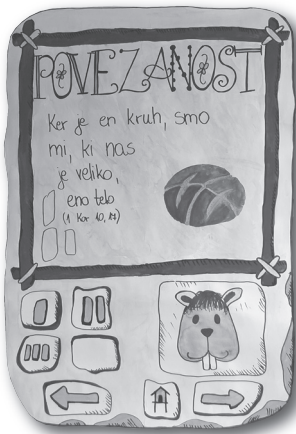 POVEZANOST
Ker je en kruh, smo
mi, ki nas
je veliko,
eno telo
(1 Kor 10,17)